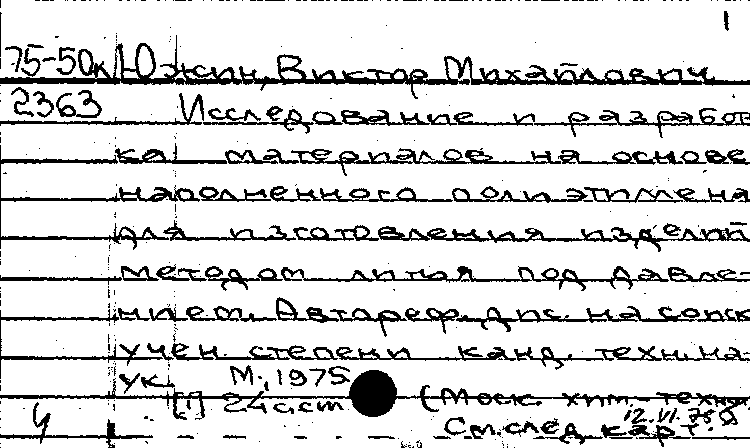 1
75-50к Южин, Виктор Михайлович
2363 Исследование и разработ
ка материалов на основе
наполненного полиэтилена
для изготовления изделий
методом литья под давле-
нием. Автореф. дис. на соиск
учен. степени канд. техн. на-
ук. М., 1975
[1] 24 с. ст (Моск. хим.-техно
12.VI.75
См. след. карт.